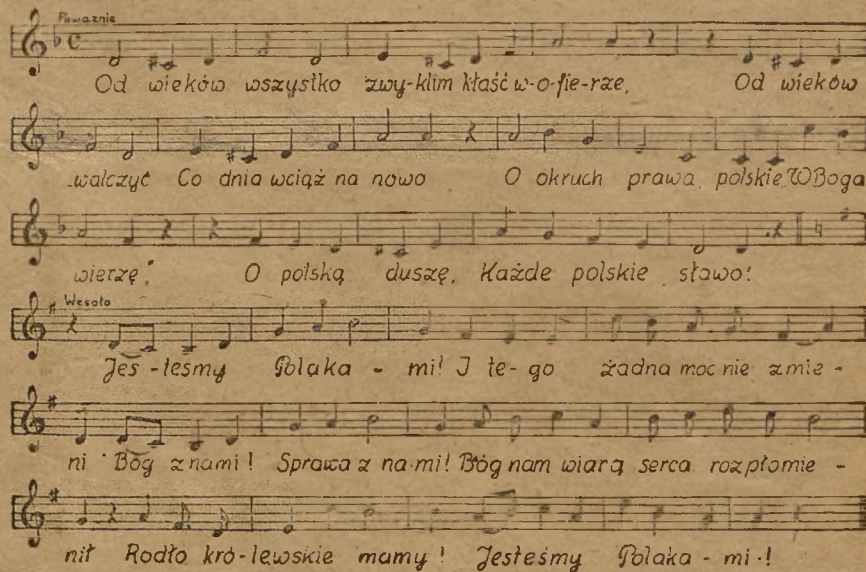 Poważnie
Od wieków wszystko zwy-klim kłaść w-o-fie-rze, Od wieków
walczyć Co dnia wciąż na nowo O okruch prawa, polskie „W Boga
wierzę", O polską duszę, Każde polskie słowo!
Wesoło
Jes-teśmy Polaka - mi! I te-go żadna moc nie zmie -
ni Bóg z nami! Sprawa z na-mi! Bóg nam wiarą serca rozpłomie -
nił Rodło kró-lewskie mamy! Jesteśmy Polaka - mi!